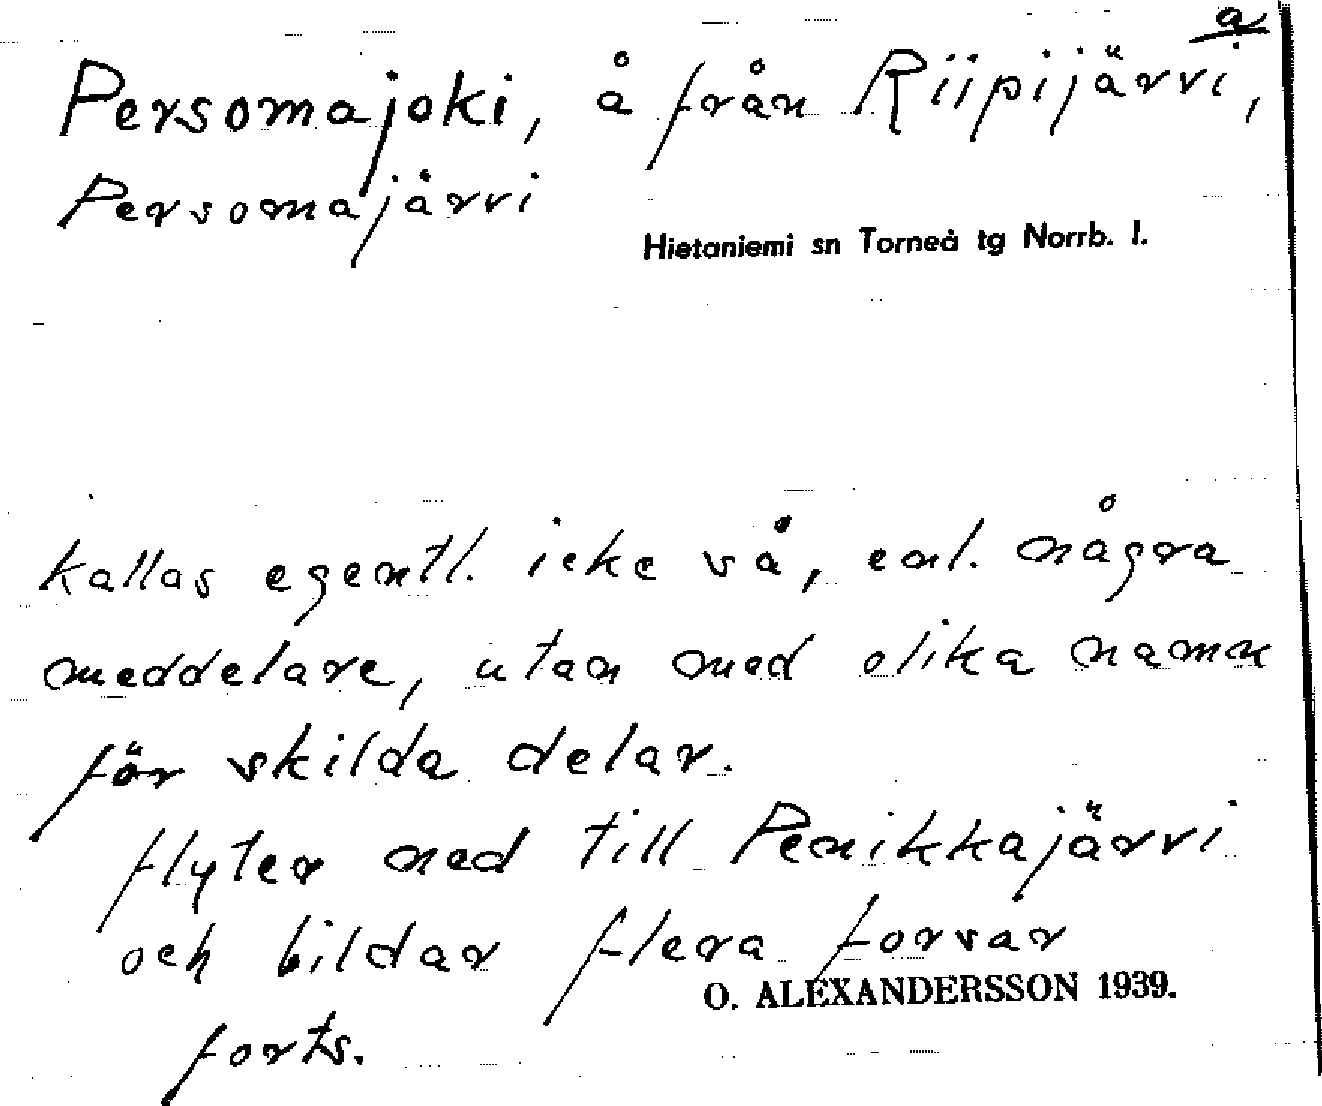 a
Persomajoki, å från Riipijärvi,
Persomajärvi
Hietaniemi sn Torneå tg Norrb. l.
kallas egentl. icke så, enl. några
meddelare, utan med olika namn
för skilda delar.
flyter ned till Penikkajärvi
och bildar flera forsar
O. ALEXANDERSSON 1939.
forts.